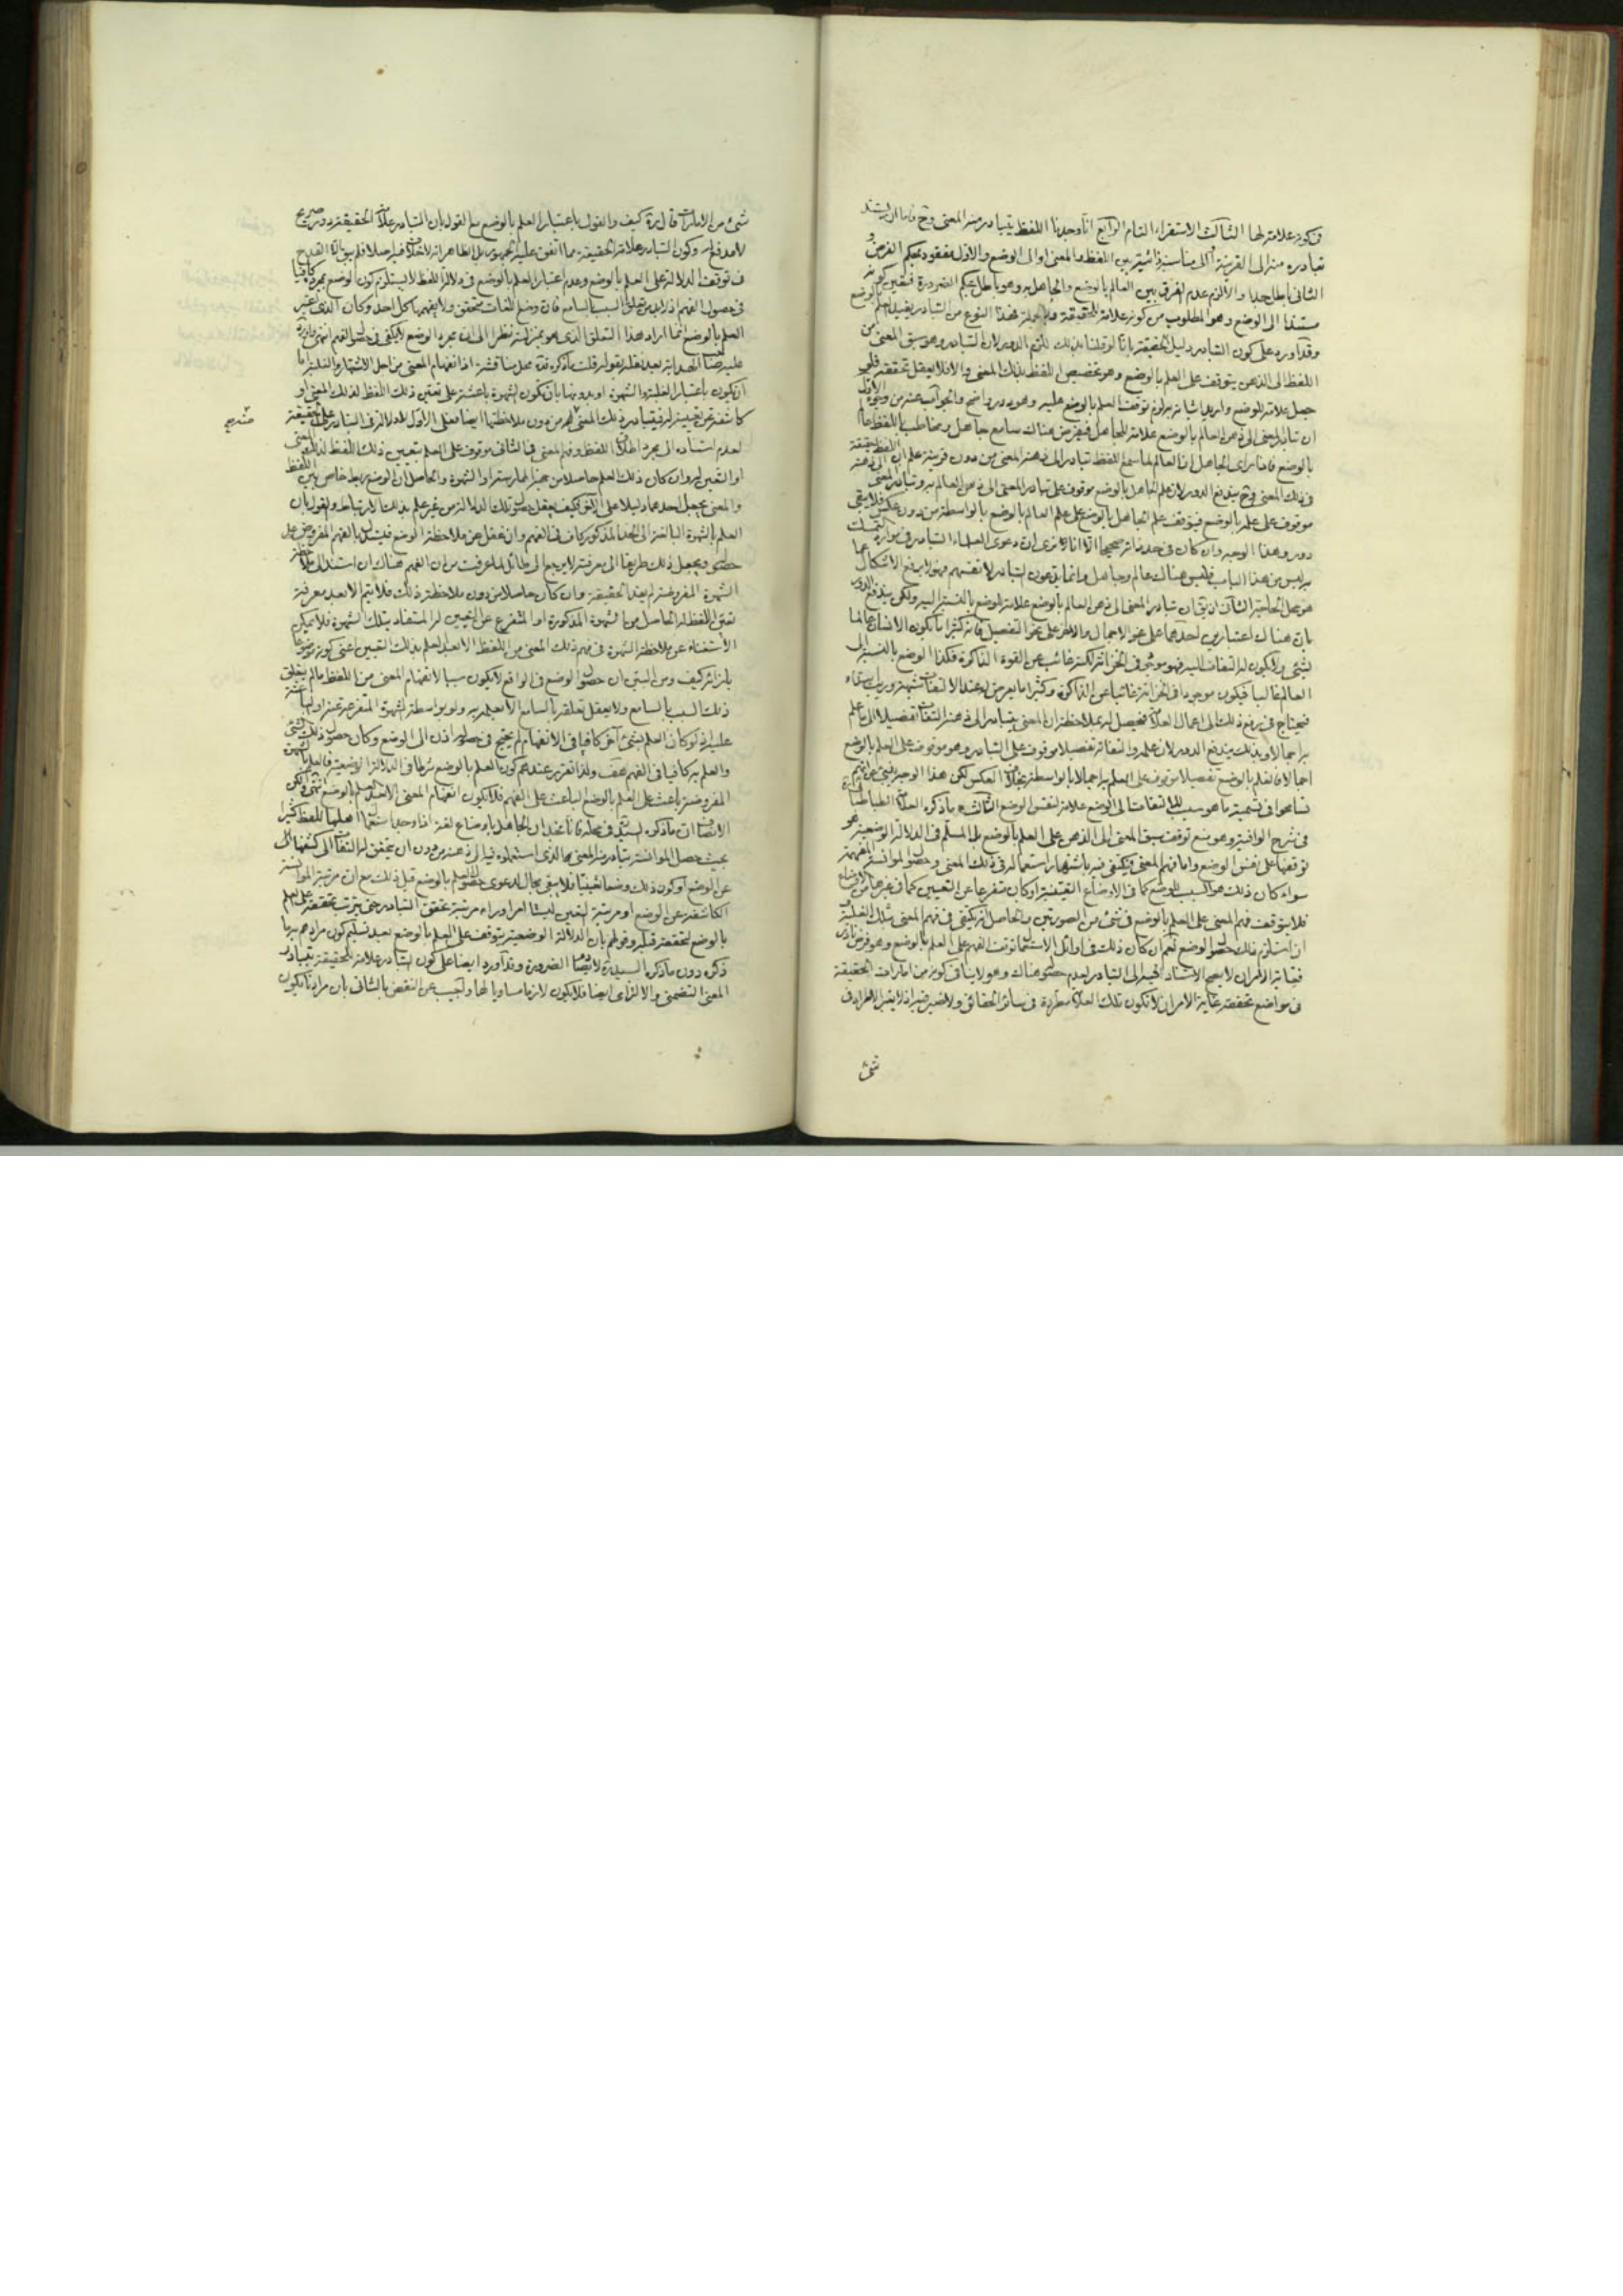 في كونه علامة لها الثالث الاستقراء التام الرابع انا وجدنا اللفظ يتبادر منه المعنى وح فاما ان يستند
تبادره منه الى القرينة او الى مناسبة ذاتية بين اللفظ والمعنى او الى الوضع والاول مفقود بحكم الفرض و
الثاني باطل جدا والا لزم عدم الفرق بين العالم بالوضع والجاهل به وهو باطل بحكم الضرورة فتعين كونه
مستندا الى الوضع وهو المطلوب من كونه علامة للحقيقة وبالجملة فهذا النوع من التبادر يفيد العلم بالوضع
وقد اورد على كون التبادر دليل الحقيقة بانا لو قلنا بذلك للزم الدور لان التبادر وهو سبق المعنى من
اللفظ الى الذهن يتوقف على العلم بالوضع وهو تخصيص اللفظ بذلك المعنى والا فلا يعقل تحققه فلو
جعل علامة للوضع واريد اثباته به لزم توقف العلم بالوضع عليه وهو دور واضح والجواب عنه من وجوه الاول
ان تبادر المعنى الى ذهن العالم بالوضع علامة للجاهل فيفرض هناك سامع جاهل ومخاطب باللفظ عالم
بالوضع فاذا رأى الجاهل ان العالم لما سمع اللفظ تبادر الى ذهنه المعنى من دون قرينة علم ان اللفظ حقيقة
في ذلك المعنى وح يندفع الدور لان علم الجاهل بالوضع موقوف على تبادر المعنى الى ذهن العالم به وتبادر المعنى الى ذهنه
موقوف على علمه بالوضع فيتوقف علم الجاهل بالوضع على علم العالم بالوضع بالواسطة من دون عكس فلا يبقى
دور وهذا الوجه وان كان في حد ذاته صحيحا الا انا نرى ان دعوى العلماء التبادر في موارد التمسك
به ليس من هذا الباب فليس هناك عالم وجاهل وانما يدعون التبادر لانفسهم فهو لا يدفع الاشكال عما
هو محل الحاجة الثاني ان يق ان تبادر المعنى الى ذهن العالم بالوضع علامة للوضع بالنسبة اليه ولكن يندفع الدور
بان هناك اعتبارين احدهما على نحو الاجمال والاخر على نحو التفصيل فانه كثيرا ما يكون الانسان عالما
بشيء ولا يكون له التفات اليه فهو موجود في الخزانة لكنه غائب عن القوة الذاكرة فكذا الوضع بالنسبة الى
العالم غالبا فيكون موجودا في الخزانة غائبا عن الذاكرة وكثيرا ما يعرض له عند الالتفات شبهة
فيحتاج في رفع ذلك الى اعمال العلامة فيحصل له بملاحظة ان المعنى يتبادر الى ذهنه التفات تفصيلا الى ما علم
به اجمالا وبذلك يندفع الدور لان علمه والتفاته تفصيلا موقوف على التبادر وهو موقوف على العلم بالوضع
اجمالا فالعلم بالوضع تفصيلا موقوف على العلم به اجمالا بالواسطة بخلاف العكس لكن هذا الوجه مبني
تسامحوا في تسمية ما هو سبب للالتفات الى الوضع علامة لنفس الوضع الثالث ما ذكره العلامة الطباطبائي
في شرح الوافية وهو منع توقف سبق المعنى الى الذهن على العلم بالوضع بل المسلم في الدلالة الوضعية هو
توقفها على نفس الوضع واما فهم المعنى فيكتفي فيه باشتهار استعماله في ذلك المعنى وحصول الموانسة المفهمة
سواء كان ذلك هو السبب للوضع كما في الاوضاع التعينية او كان متفرعا عن التعيين كما في غيرها من الاوضاع
فلا يتوقف فهم المعنى على العلم بالوضع في شيء من الصورتين والحاصل انه يكتفي في فهم المعنى بتلك الغلبة و
ان استلزم ذلك حصول الوضع نعم ان كان ذلك في اوائل الاستعمال توقف الفهم على العلم بالوضع وهو فرض نادر
فغاية الامر ان لا يصح الاستناد حينئذ الى التبادر لعدم حصوله هناك وهو لا ينافي كونه من امارات الحقيقة
في مواضع تحققه غاية الامر ان لا تكون تلك العلامة مطردة في سائر الحقائق ولا ضير فيه اذ لا يعتبر الاطراد في
شيء
شيء من الامارات قال كيف والقول باعتبار العلم بالوضع مع القول بان التبادر علامة الحقيقة دور صريح
لا مدفع له وكون التبادر علامة الحقيقة مما اتفق عليه الجمهور بل الظاهر انه لا خلاف فيه اصلا فلم يبق الا القدح
في توقف الدلالة على العلم بالوضع وعدم اعتبار العلم بالوضع في دلالة اللفظ لا يستلزم كون الوضع بمجرده كافيا
في حصول الفهم اذ لا بد من تعلق السبب بالسامع فان وضع اللغات متحقق ولا يفهمها كل احد وكأن الذي اعتبر
العلم بالوضع انما اراد هذا التعلق الذي هو بمنزلته نظرا الى ان مجرد الوضع لا يكفي في حصول الفهم انتهى
ان يكون باعتبار الغلبة والشهرة او بدونها بان تكون الشهرة باعثة على تعين ذلك اللفظ لذلك المعنى او
كاشفة عن تعيينه له فيتبادر ذلك المعنى منه من دون ملاحظتها ايضا فعلى الاول لا دلالة في التبادر على الحقيقة
لعدم استناده الى مجرد اطلاق اللفظ وفهم المعنى في الثاني موقوف على العلم بتعيين ذلك اللفظ لذلك المعنى
او التعين له وان كان ذلك العلم حاصلا من جهة الممارسة او الشهرة والحاصل ان الوضع ربط خاص بين اللفظ
والمعنى يجعل احدهما دليلا على الاخر فكيف يعقل حصول تلك الدلالة من غير علم بذلك الارتباط والقول بان
العلم بالشهرة البالغة الى الحد المذكور كاف في الفهم وان غفل عن ملاحظة الوضع فيستدل بالفهم المفروض على
حصوله ويجعل ذلك طريقا الى معرفته لا يرجع الى طائل لما عرفت من ان الفهم هناك ان استند الى ملاحظة
الشهرة المفروضة لم يفد الحقيقة وان كان حاصلا من دون ملاحظة ذلك فلا يتم الا بعد معرفة
تعين اللفظ له الحاصل من الشهرة المذكورة او المتفرع عن التعيين له المستفاد بتلك الشهرة فلا يمكن
الاستغناء عن ملاحظة الشهرة في فهم ذلك المعنى من اللفظ الا بعد العلم بذلك التعيين اعني كونه موضوعا
بازائه كيف ومن البين ان حصول الوضع في الواقع لا يكون سببا لانفهام المعنى من اللفظ ما لم يتعلق
ذلك السبب بالسامع ولا يعقل تعلقه بالسامع الا بعلمه به ولو بواسطة الشهرة المتفرعة عنه او الباعثة
عليه اذ لو كان العلم بشيء اخر كافيا في الانفهام لم يحتج في حصوله اذن الى الوضع وكان حصول ذلك الشيء
والعلم به كافيا في الفهم هف ولذا تقرر عندهم كون العلم بالوضع شرطا في الدلالة الوضعية فالعلم بالشهرة
المفروضة باعث على العلم بالوضع الباعث على الفهم فلا يكون انفهام المعنى الا بعد العلم بالوضع انتهى ولكن
الانصاف ان ما ذكره السيد في محله فانا نجد ان الجاهل باوضاع لغة اذا وجد استعمال اهلها للفظ كثيرا
بحيث حصل الموانسة يتبادر منه المعنى الذي استعملوه فيه الى ذهنه من دون ان يتحقق له التفات الى كشفها
عن الوضع او كون ذلك وضعا تعينيا فلا يبقى مجال لدعوى حصول العلم بالوضع قبل ذلك مع ان مرتبة الموانسة
الكاشفة عن الوضع او مرتبة التعين ليستا امرا وراء مرتبة تحقق التبادر حتى يترتب تحققه على العلم
بالوضع لتحققه قبله وقولهم بان الدلالة الوضعية يتوقف على العلم بالوضع بعد تسليم كون مرادهم به ما
ذكره دون ما ذكره السيد لا يصادم الضرورة وقد اورد ايضا على كون التبادر علامة للحقيقة بتبادر
المعنى التضمني والالتزامي ايضا فلا يكون لازما مساويا لها واجيب عن النقض بالثاني بان مرادنا بكون